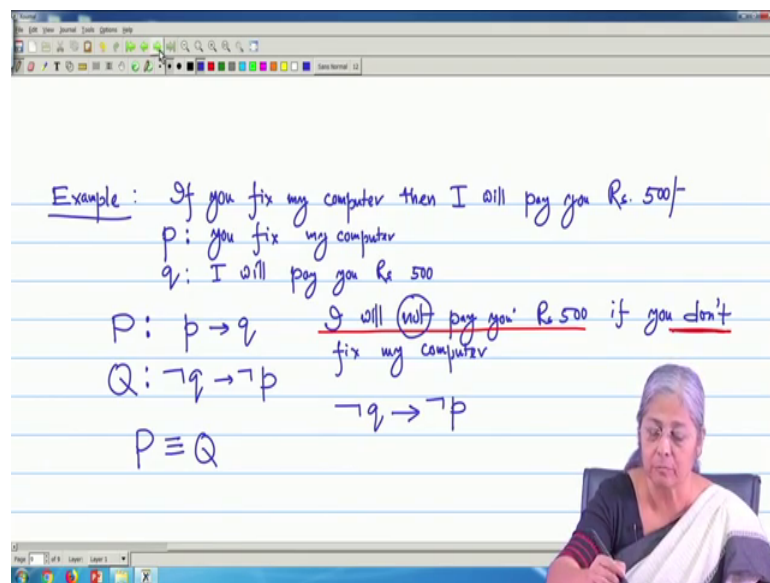 Journal
File Edit View Journal Tools Options Help
Sans Normal 12
Example: If you fix my computer then I will pay you Rs. 500/-
p: you fix my computer
q: I will pay you Rs 500
P: p → q
I will not pay you Rs 500 if you don't
fix my computer
Q: ¬q → ¬p
¬q → ¬p
P ≡ Q
Page 9 of 9 Layer: Layer 1